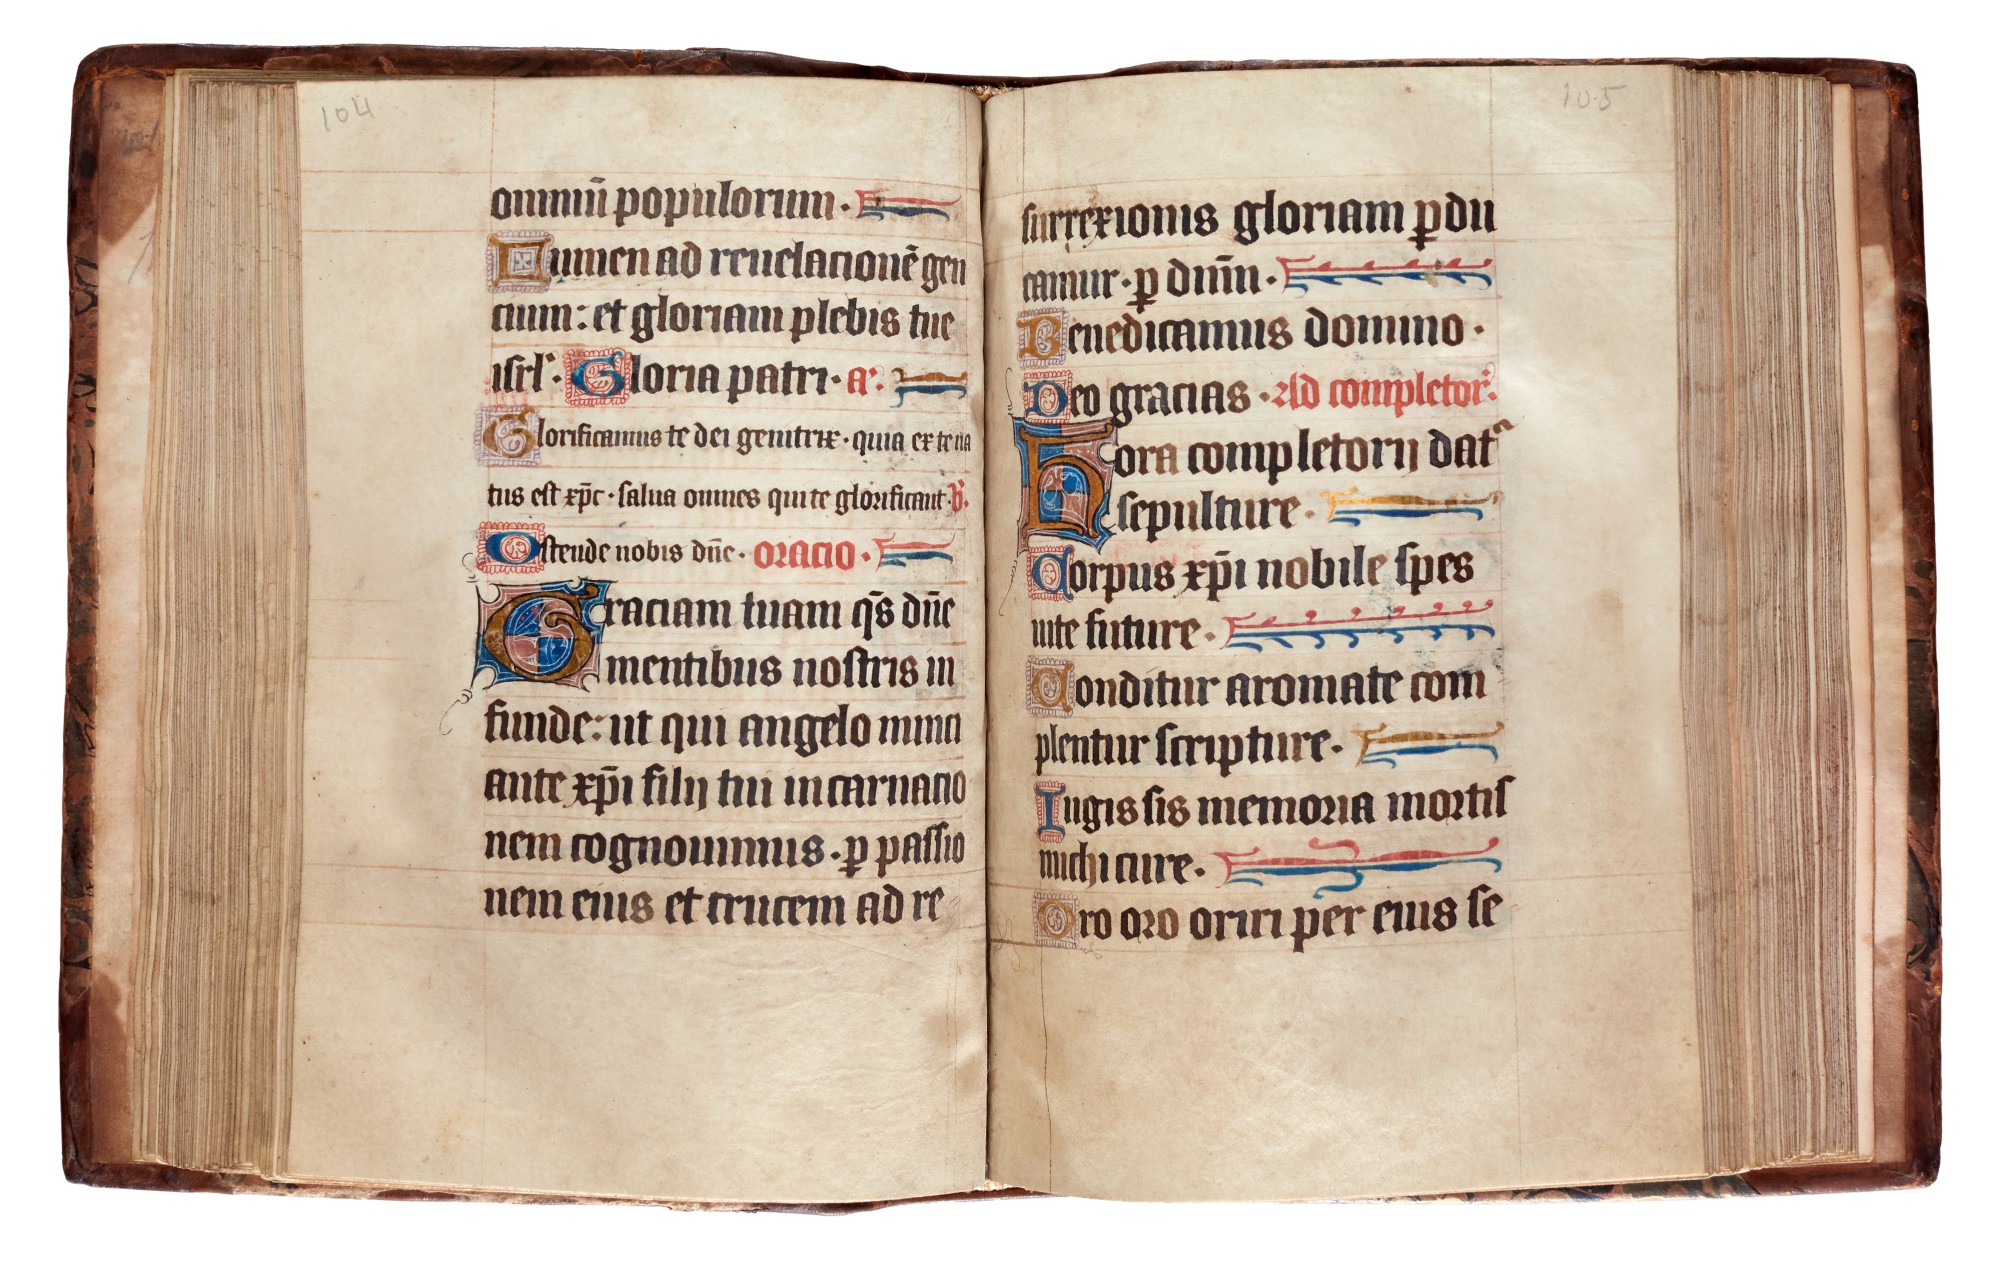 104
omniū populorum ·
Lumen ad reuelacionē gen
cium : et gloriam plebis tue
isrl'. Gloria patri · a'.
Glorificamus te dei genitrix · quia ex te na
tus est xp̄c · salua omnes qui te glorificant · V̄.
Ostende nobis dn̄e · oracio ·
Graciam tuam q̄s dn̄e
mentibus nostris in
funde : ut qui angelo nunci
ante xp̄i filij tui incarnacio
nem cognouimus · ꝑ passio
nem eius et crucem ad re
105
surrexionis gloriam ꝑdu
camur · ꝑ dn̄m ·
Benedicamus domino ·
Deo gracias · Ad completor'.
Hora completorij datᵃ
sepulture ·
Corpus xp̄i nobile spes
uite future ·
Conditur aromate com
plentur scripture ·
Iugis sis memoria mortis
michi cure ·
Oro oro oriri per eius se